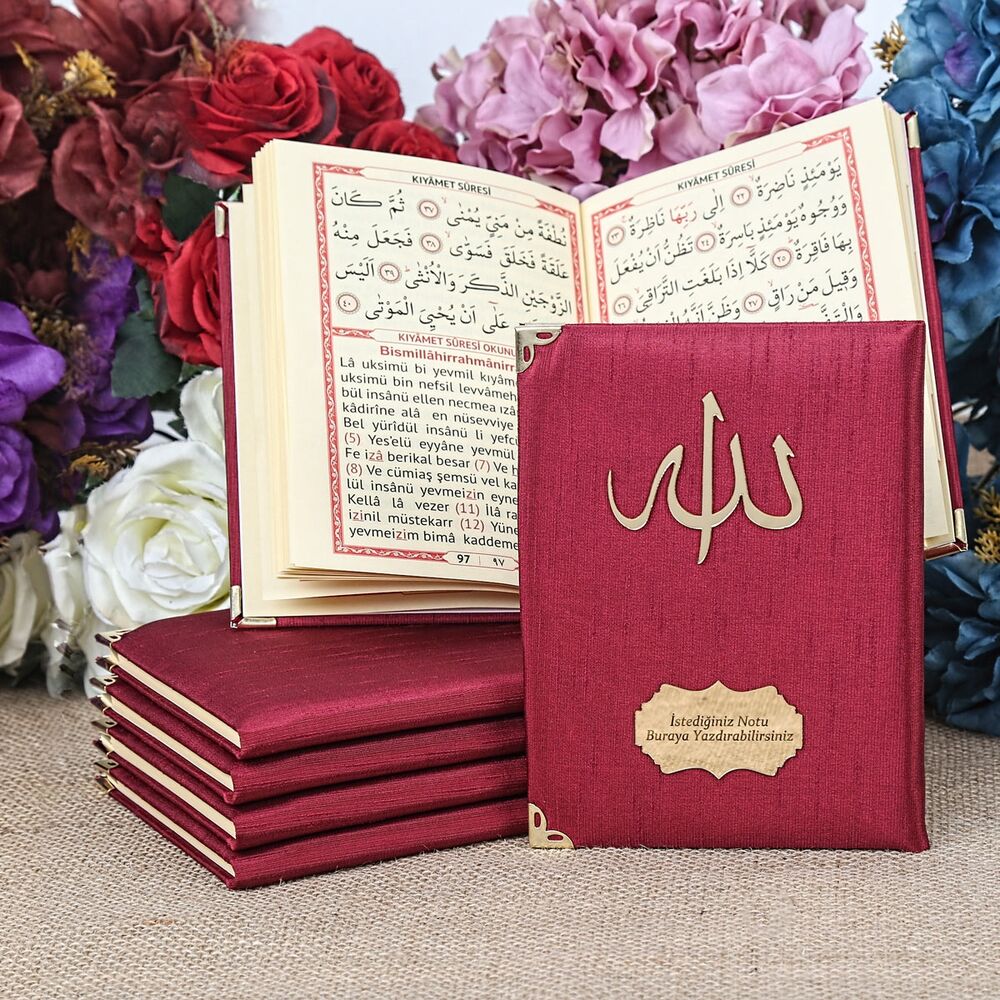 KIYÂMET SÛRESİ
نُطْفَةً مِنْ مَنِيٍّ يُمْنٰىۙ ﴿٣٧﴾ ثُمَّ كَانَ
عَلَقَةً فَخَلَقَ فَسَوّٰىۙ ﴿٣٨﴾ فَجَعَلَ مِنْهُ
الزَّوْجَيْنِ الذَّكَرَ وَالْاُنْثٰىۜ ﴿٣٩﴾ اَلَيْسَ
عَلٰٓى اَنْ يُحْيِيَ الْمَوْتٰى ﴿٤٠﴾
KIYÂMET SÛRESİ OKUNU
Bismillâhirrahmânirr
Lâ uksimü bi yevmil kıyâme
uksimü bin nefsil levvâmeh
bül insânü ellen necmea ızâ
kâdirîne alâ en nüsevviye
Bel yürîdül insânü li yefcü
(5) Yes'elü eyyâne yevmül
Fe izâ berikal besar (7) Ve h
(8) Ve cümiaş şemsü vel ka
lül insânü yevmeizin eyne
Kellâ lâ vezer (11) İlâ ra
izinil müstekarr (12) Yüne
yevmeizim bimâ kaddeme
97 ٩٧
KIYÂMET SÛRESİ
يَوْمَئِذٍ نَاضِرَةٌ ﴿٢٢﴾
اِلٰى رَبِّهَا نَاظِرَةٌ ﴿٢٣﴾ وَوُجُوهٌ يَوْمَئِذٍ بَاسِرَةٌ ﴿٢٤﴾
تَظُنُّ اَنْ يُفْعَلَ بِهَا فَاقِرَةٌ ﴿٢٥﴾
كَلَّٓا اِذَا بَلَغَتِ التَّرَاقِيَ ﴿٢٦﴾ وَقِيلَ مَنْ رَاقٍ ﴿٢٧﴾
وَظَنَّ اَنَّهُ
الله
İstediğiniz Notu
Buraya Yazdırabilirsiniz